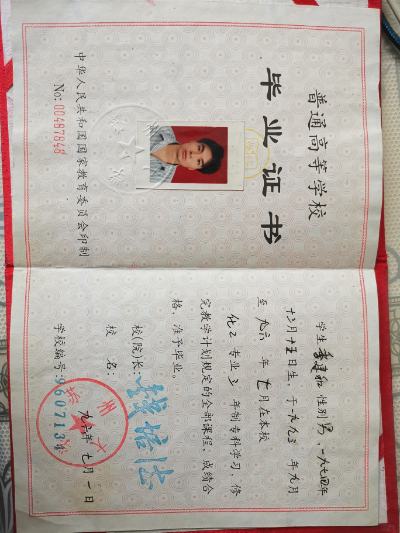 普通高等学校
毕业证书
中华人民共和国国家教育委员会印制
No: 00487848
学生 李建和 性别 男,一九七四年
十二月十五日生,于一九九三年九月
至一九九六年七月在本校
化工专业 三 年制专科学习,修
完教学计划规定的全部课程,成绩合
格,准予毕业。
校(院)长:
校 名:
学校编号: 9607134
一九九六年七月一日